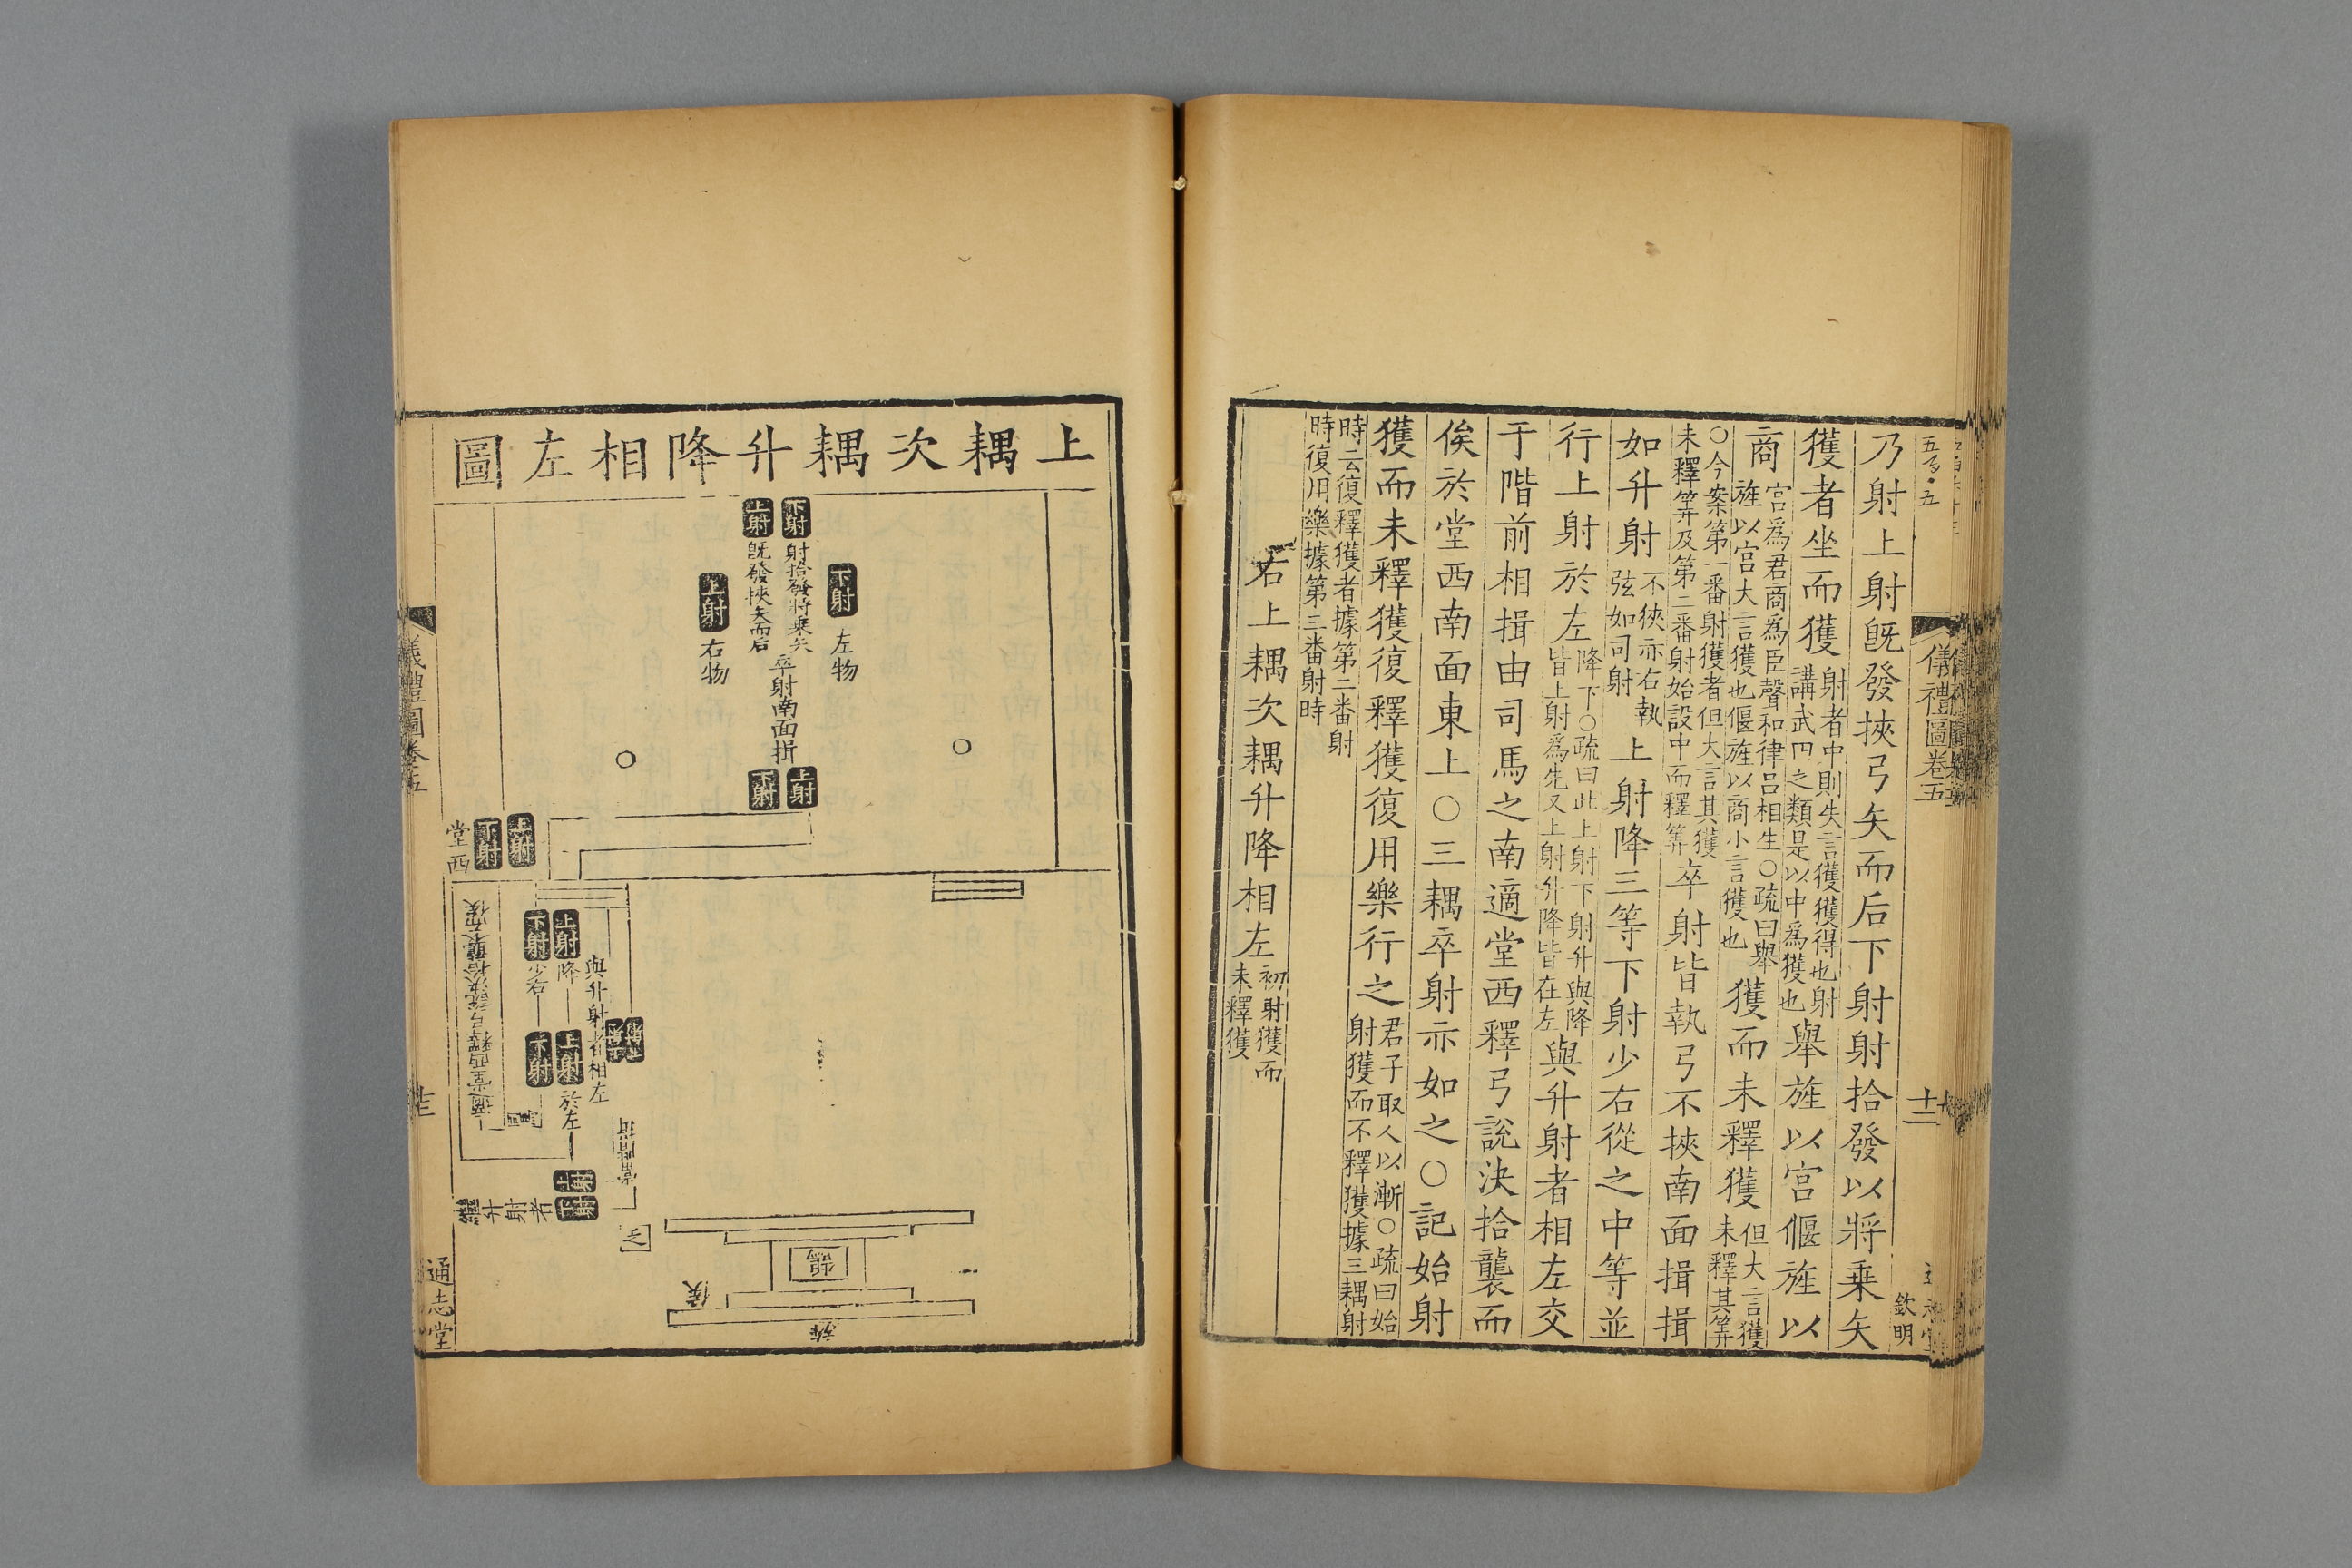 乃射上射既發挾弓矢而后下射射拾發以將乗矢
獲者坐而獲射者中則失言獲獲得也射講武田之類是以中為獲也舉旌以宮偃旌以
商宮為君商為臣聲和律呂相生○疏曰舉旌以宮大言獲也偃旌以商小言獲也獲而未釋獲但大言獲未釋其筭
○今案第一番射獲者但大言其獲未釋筭及第二番射始設中而釋筭卒射皆執弓不挾南面揖揖
如升射不挾亦右執弦如司射上射降三等下射少右從之中等並
行上射於左降下○疏曰此上射下射升與降皆上射為先又上射升降皆在左與升射者相左交
于階前相揖由司馬之南適堂西釋弓說決拾襲而
俟於堂西南面東上○三耦卒射亦如之○記始射
獲而未釋獲復釋獲復用樂行之君子取人以漸○疏曰始射獲而不釋獲據三耦射
時云復釋獲者據第二番射時復用樂據第三番射時
右上耦次耦升降相左初射獲而未釋獲
儀禮圖卷五
十二
欽明
上耦次耦升降相左圖
下射
射拾發將乗矢
上射
既發挾矢而后
下射
左物
上射
右物
卒射南面揖
上射
下射
上射
下射
堂西
上射
降
下射
少右
與升射者相左
上射
於左
下射
適堂西釋弓說決拾襲而俟
當階揖
上射
下射
繼升射者
鵠
侯
旌
儀禮圖卷五
通志堂